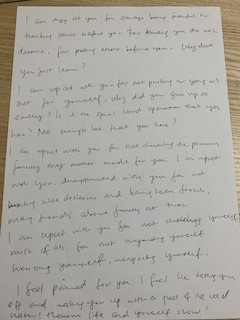 I am angry at you for always being fearful or
thinking others before you. For things you do not
deserve, for putting others before you. Why didn't
you just leave?
I am upset with you for not pushing or going all
out for yourself, why did you give up so
easily? Is it the spinal cord operation that you
had? Not enough love that you have?
I am upset with you for not cherishing the precious
family my mother made for you. I am upset
with you, disappointed with you for not
making wise decisions and being foolish,
putting friends above family at times.
I am upset with you for not yourself
most of all, for not respecting yourself
honoring yourself, respecting yourself.
I feel pained for you. I feel like telling you
off and waking you up with a pail of ice cold
water! Treasure life and yourself more!